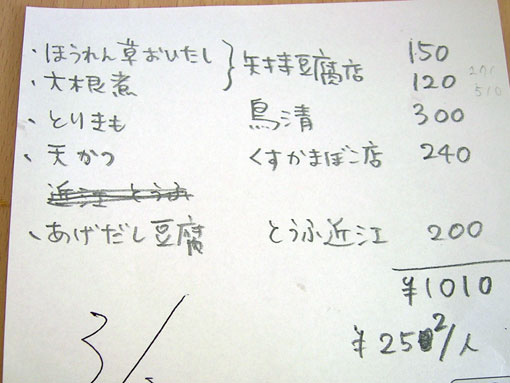 ・ほうれん草おひたし 矢持豆腐店 150
・大根煮 120
・とりきも 鳥清 300
・天かつ くずかまぼこ店 240
近江とうふ
・あげだし豆腐 とうふ近江 200
¥1010
¥252/人
3/